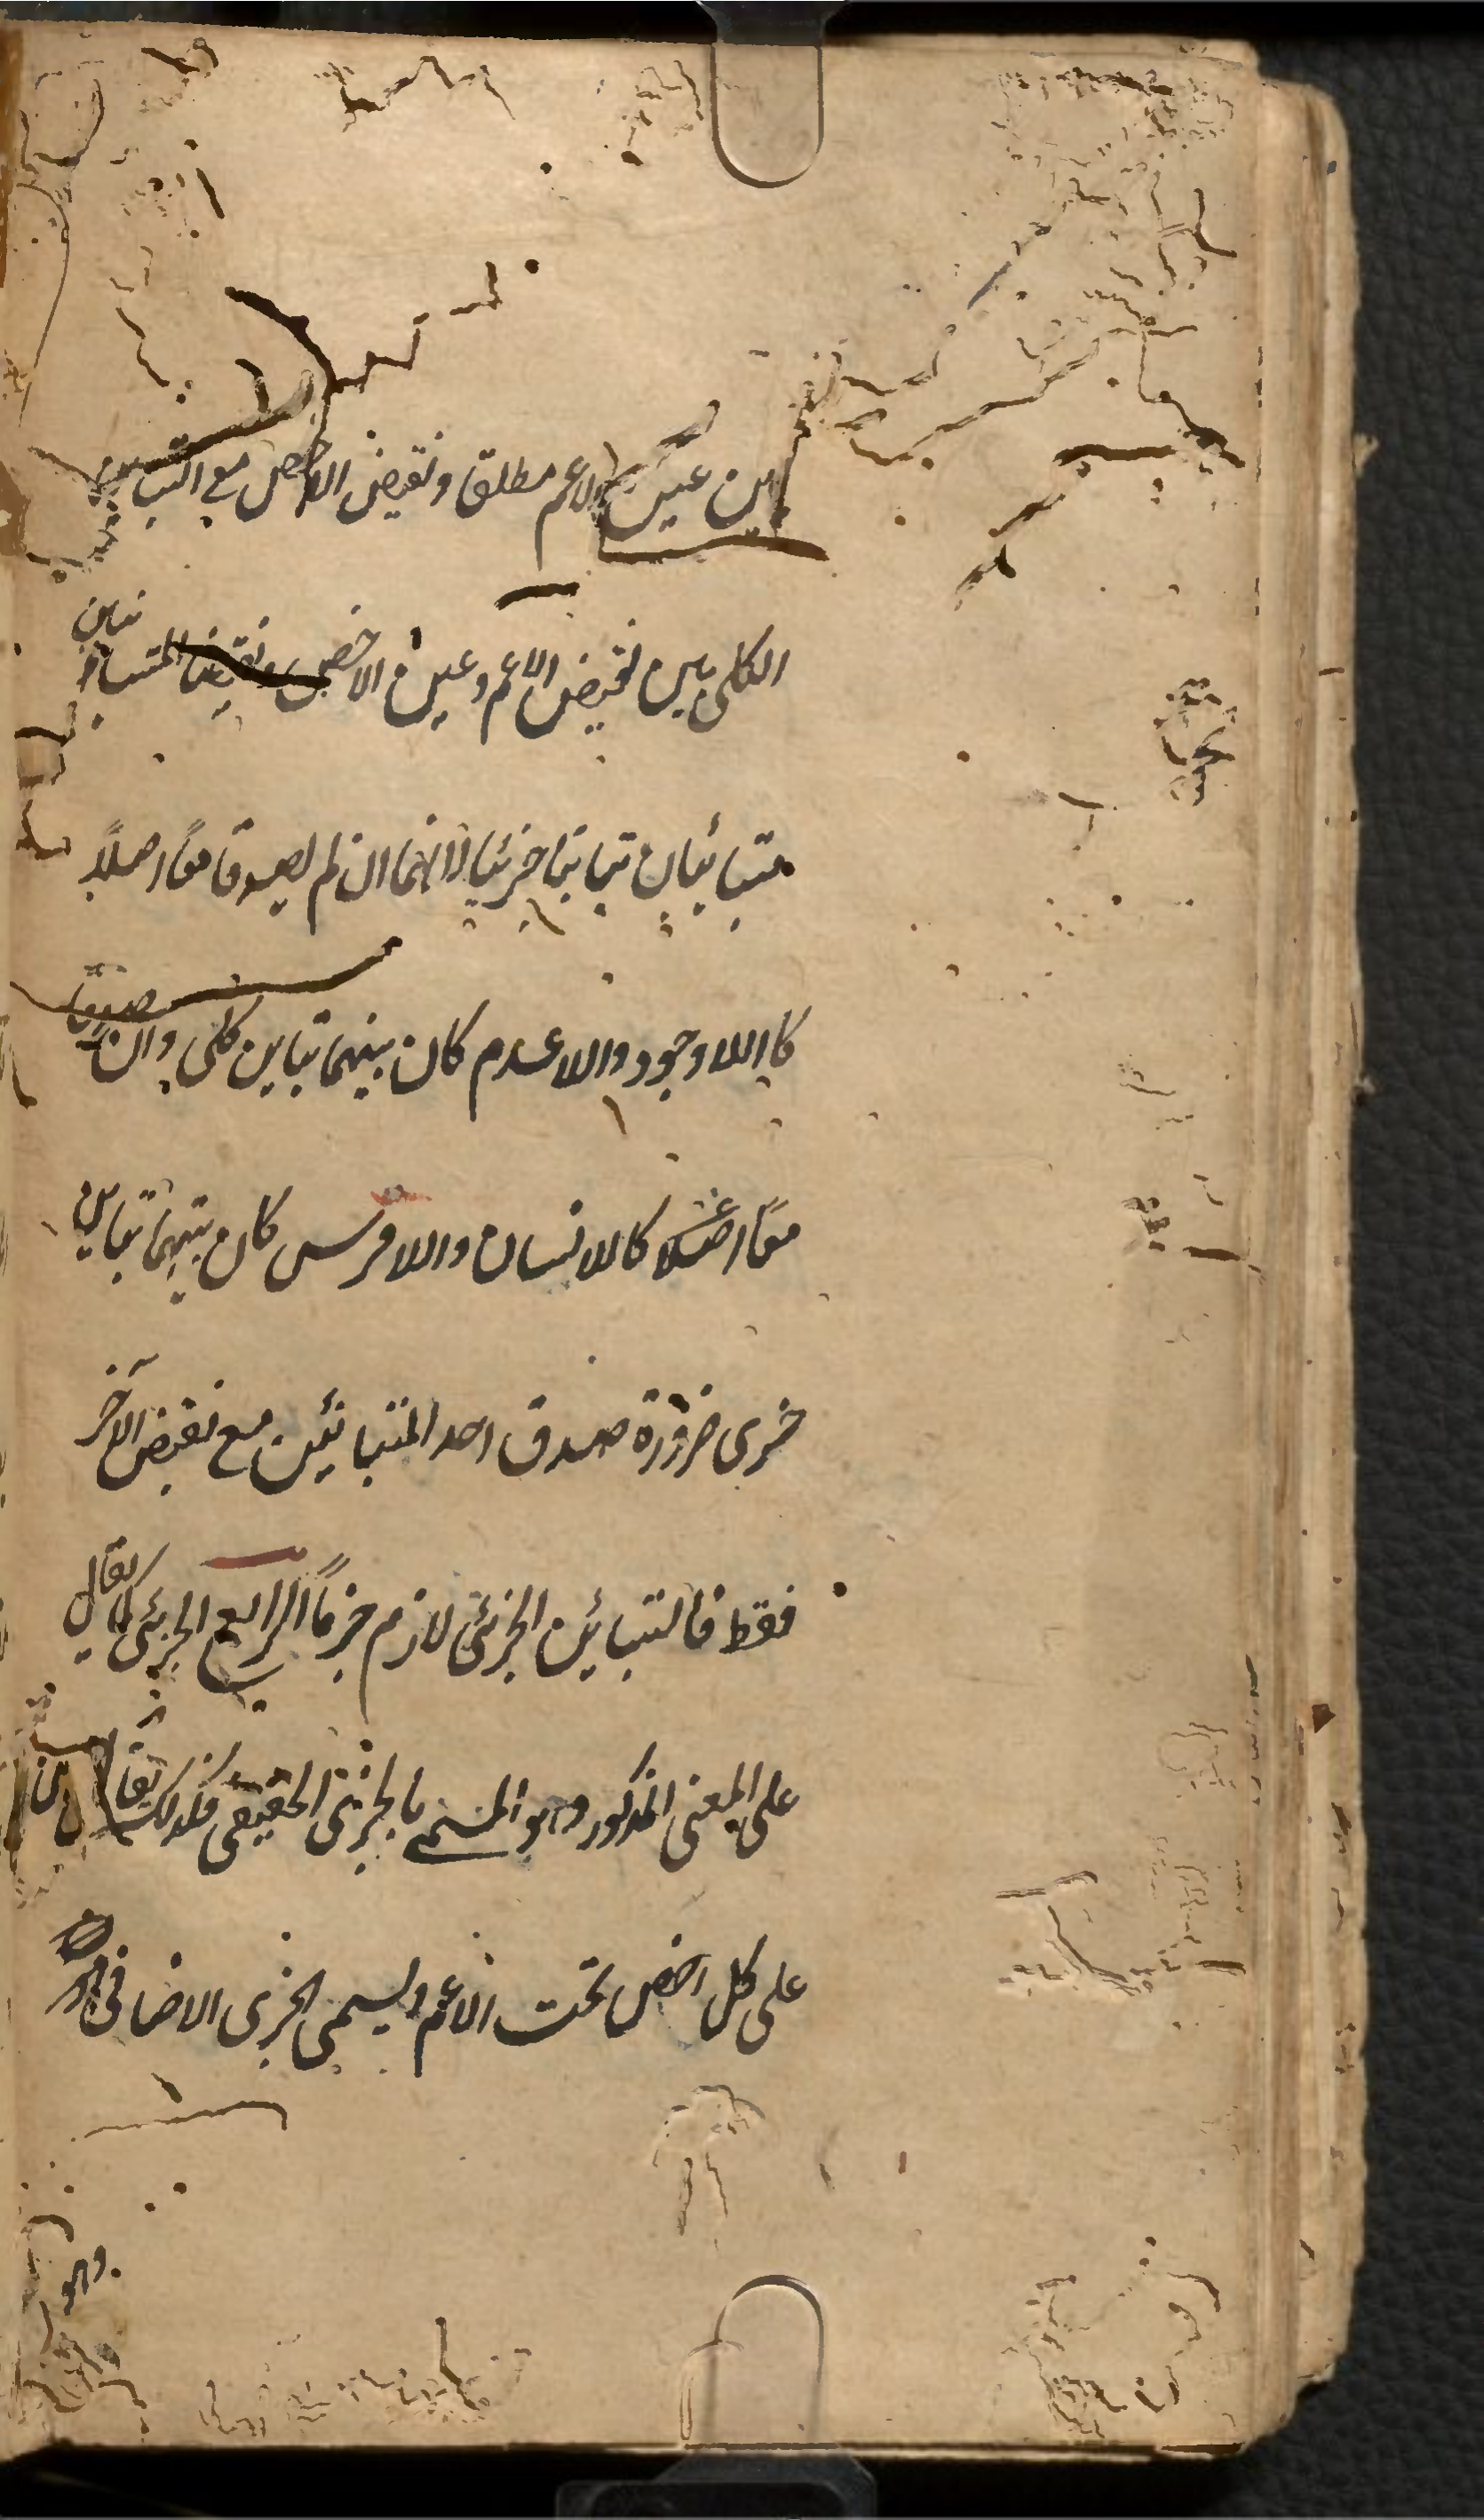 بين عين الاعم مطلقا ونقيض الاخص مع التباين
الكلى بين نقيض الاعم وعين الاخص ونقيضا المتباينين
متبائنان تباينا جزئيا لانهما ان لم يصدقا معًا اصلاً
كاللاوجود واللاعدم كان بينهما تباين كلى وان صدقا
معًا اصلا كاللانسان واللافرس كان بينهما تباين
جزى ضرورة صدق احد المتبائنين مع نقيض الآخر
فقط فالتبائن الجزئى لازم جزمًا الرابع الجزئى كما يقال
على المعنى المذكور وهو المسمى بالجزئى الحقيقى فكذلك يقال
على كل اخص تحت الاعم ويسمى الجزى الاضافى
وهو